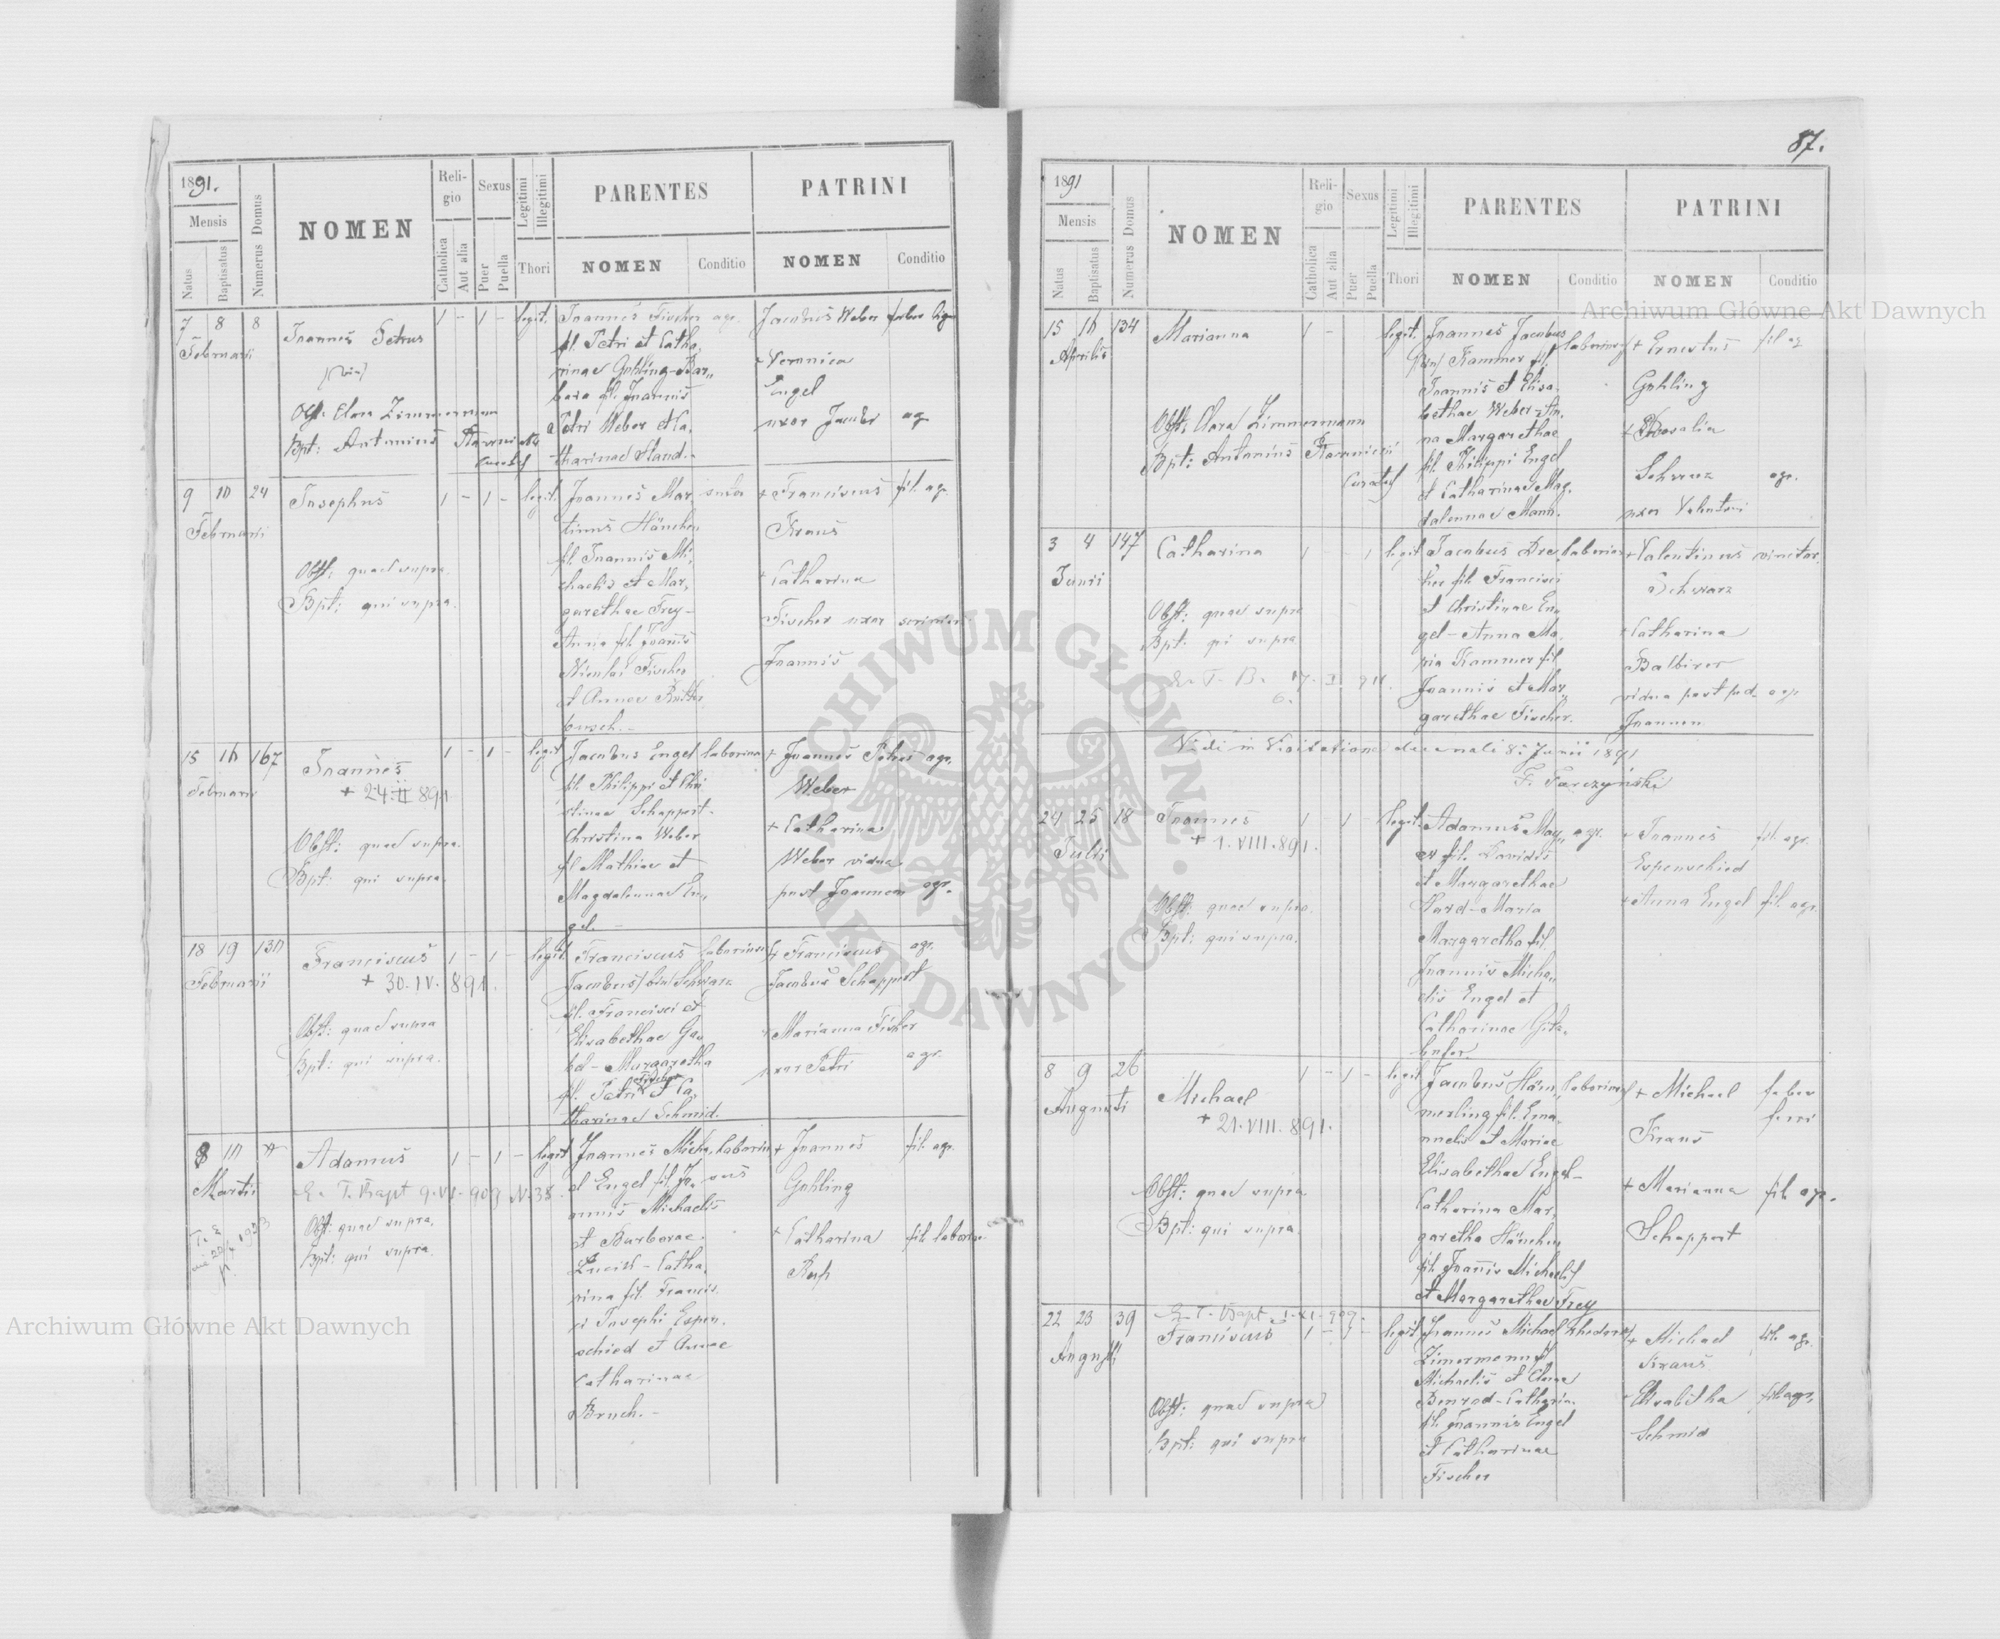 87.
1891.
Mensis
Natus
Baptisatus
Numerus Domus
NOMEN
Reli-
gio
Catholica
Aut alia
Sexus
Puer
Puella
Legitimi
Illegitimi
Thori
PARENTES
NOMEN
Conditio
PATRINI
NOMEN
Conditio
7 8 8
Februarii
Joannes Petrus
Obst: Clara Zimmermann
Bpt: Antonius
1 - 1 - legit.
Joannes Fischer agr.
fil. Petri et Catha,
rinae Gohling-Bar,,
bara fil. Joannis
Petri Weber et Ca,
tharinae Staud.-
Jacobus Weber faber lign
+ Veronica
Engel
uxor Jacobi ag
9 10 24
Februarii
Josephus
Obst: quae supra.
Bpt: qui supra.
1 - 1 - legit.
Joannes Mar, sutor
tinus Hänchen
fil. Joannis Mi,
chaelis et Mar,
garethae Frey-
Anna fil. Joannis
Nicolai Fischer
et Annae
+ Franciscus fil. ag.
Kraus
+ Catharina
Fischer uxor
Joannis
15 16 167
Februarii
Joannes
+ 24.II 891
Obst: quae supra.
Bpt: qui supra.
1 - 1 - legit
Jacobus Engel laborius
fil. Philippi et Chri
stinae Schappert-
Christina Weber
fil Mathiae et
Magdalenae En,
gel.-
+ Joannes Petrus agr.
Weber
+ Catharina
Weber vidua
post Joannem agr.
18 19 130
Februarii
Franciscus
+ 30.IV.891.
Obst: quae supra
Bpt: qui supra.
1 - 1 - legit
Franciscus laborius
Jacobus /bin/ Schwarz
fil. Francisci et
Elisabethae Ga,
bel - Margaretha
fil. Petri Fischer et Ca,
tharinae Schmid.
+ Franciscus agr.
Jacobus Schappert
+ Marianna Fischer
uxor Petri agr.
8 10
Martii
Adamus
Ex T. Bapt 9.VI-903 N.35.
Obst: quae supra.
Bpt: qui supra.
1 - 1 - legit
Joannes Micha, laborio
el Engel fil. Jo, sus
annis Michaelis
et Barbarae
- Catha,
rina fil. Francis,
ci Josephi Espen,
schied et Annae
Catharinae
Bruch.-
+ Joannes fil. agr.
Gohling
+ Catharina fil. labor
1891
Mensis
Natus
Baptisatus
Numerus Domus
NOMEN
Reli-
gio
Catholica
Aut alia
Sexus
Puer
Puella
Legitimi
Illegitimi
Thori
PARENTES
NOMEN
Conditio
PATRINI
NOMEN
Conditio
15 16 134
Aprilis
Marianna
Obst: Clara Zimmermann
Bpt: Antonius
1 - legit.
Joannes Jacobus
/bin/ Kammer fil.
Joannis et Elisa,
bethae Weber-An,
na Margarethae
fil. Philippi Engel
et Catharinae Mag,
dalenae Mann.
+ Ernestus fil ag
Gohling
+ Rosalia
Schwarz agr.
uxor Valentini
3 4 147
Junii
Catharina
Obst: quae supra
Bpt: qui supra
1 1 legit
Jacobus Bre, laborius
her fil. Francisci
et Christinae En,
gel-Anna Ma,
ria Kammer fil
Joannis et Mar,
garethae Fischer.
+ Valentinus vinctor.
Schwarz
+ Catharina
Balbirer
vidua post pod. agr
Joannem
Vidi in Visitatione decanali 8. Junii 1891
F. Tarczyński
24 25 18
Julii
Joannes
+ 1.VIII.891.
Obst: quae supra.
Bpt: qui supra.
1 - 1 - legit.
Adamus May, agr.
er fil. Davidis
et Margarethae
Hard-Maria
Margaretha fil.
Joannis Micha,
elis Engel et
Catharinae
+ Joannes fil. agr.
Espenschied
+ Anna Engel fil. agr.
8 9 26
Augusti
Michael
+ 21.VIII.891.
Obst: quae supra
Bpt: qui supra
1 - 1 - legit
Jacobus Häm, laborius
merling fil. Ema,
nuelis et Mariae
Elisabethae Engel-
Catharina Mar,
garetha Hänchen
fil. Joannis Michaelis
et Margarethae Frey
+ Michael faber
Kraus ferri
+ Marianna fil. agr.
Schappert
22 23 39
Augusti
Ex T. Bapt 1.XI-909.
Franciscus
Obst: quae supra
Bpt: qui supra
1 - 1 - legit
Joannes Michael
Zimermann fil
Michaelis et Clarae
Benrod-Catharina
fil. Joannis Engel
et Catharinae
Fischer
+ Michael fil. agr.
Kraus
+ Elisabetha fil. agr.
Schmid
Archiwum Główne Akt Dawnych
Archiwum Główne Akt Dawnych
ARCHIWUM GŁÓWNE • AKT DAWNYCH •